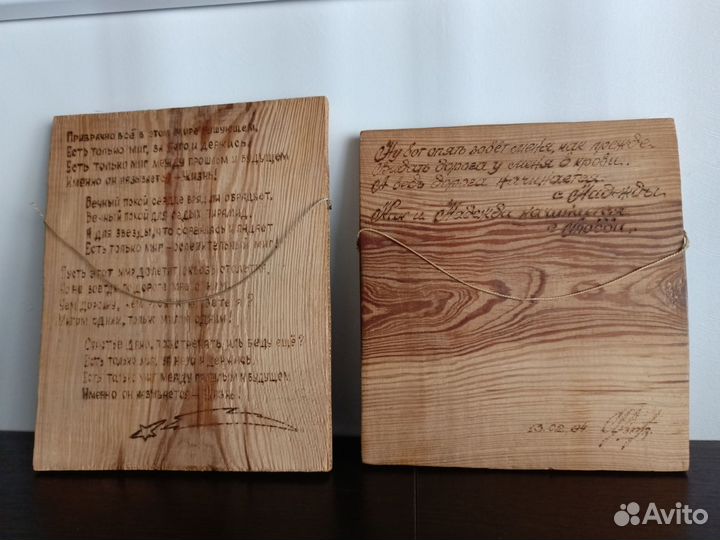 Призрачно всё в этом мире бушующем.
Есть только миг, за него и держись.
Есть только миг между прошлым и будущим
Именно он называется – жизнь!
Вечный покой сердце вряд ли обрадует.
Вечный покой для седых пирамид,
А для звезды, что сорвалась и падает
Есть только миг – ослепительный миг!
Пусть этот мир летит сквозь столетия.
Но не всегда по дороге мне с ним.
Чем дорожу, чем рискую на свете я?
Мигом одним, только мигом одним!
Счастье дано повстречать, иль беду ещё?
Есть только миг, за него и держись.
Есть только миг между прошлым и будущем
Именно он называется – жизнь!
Ну вот опять зовёт меня, как прежде..
дорога у меня в крови..
А ведь дорога начинается
с Надежды
Как и Надежда начинается
с Любви..
13.02.04
Avito